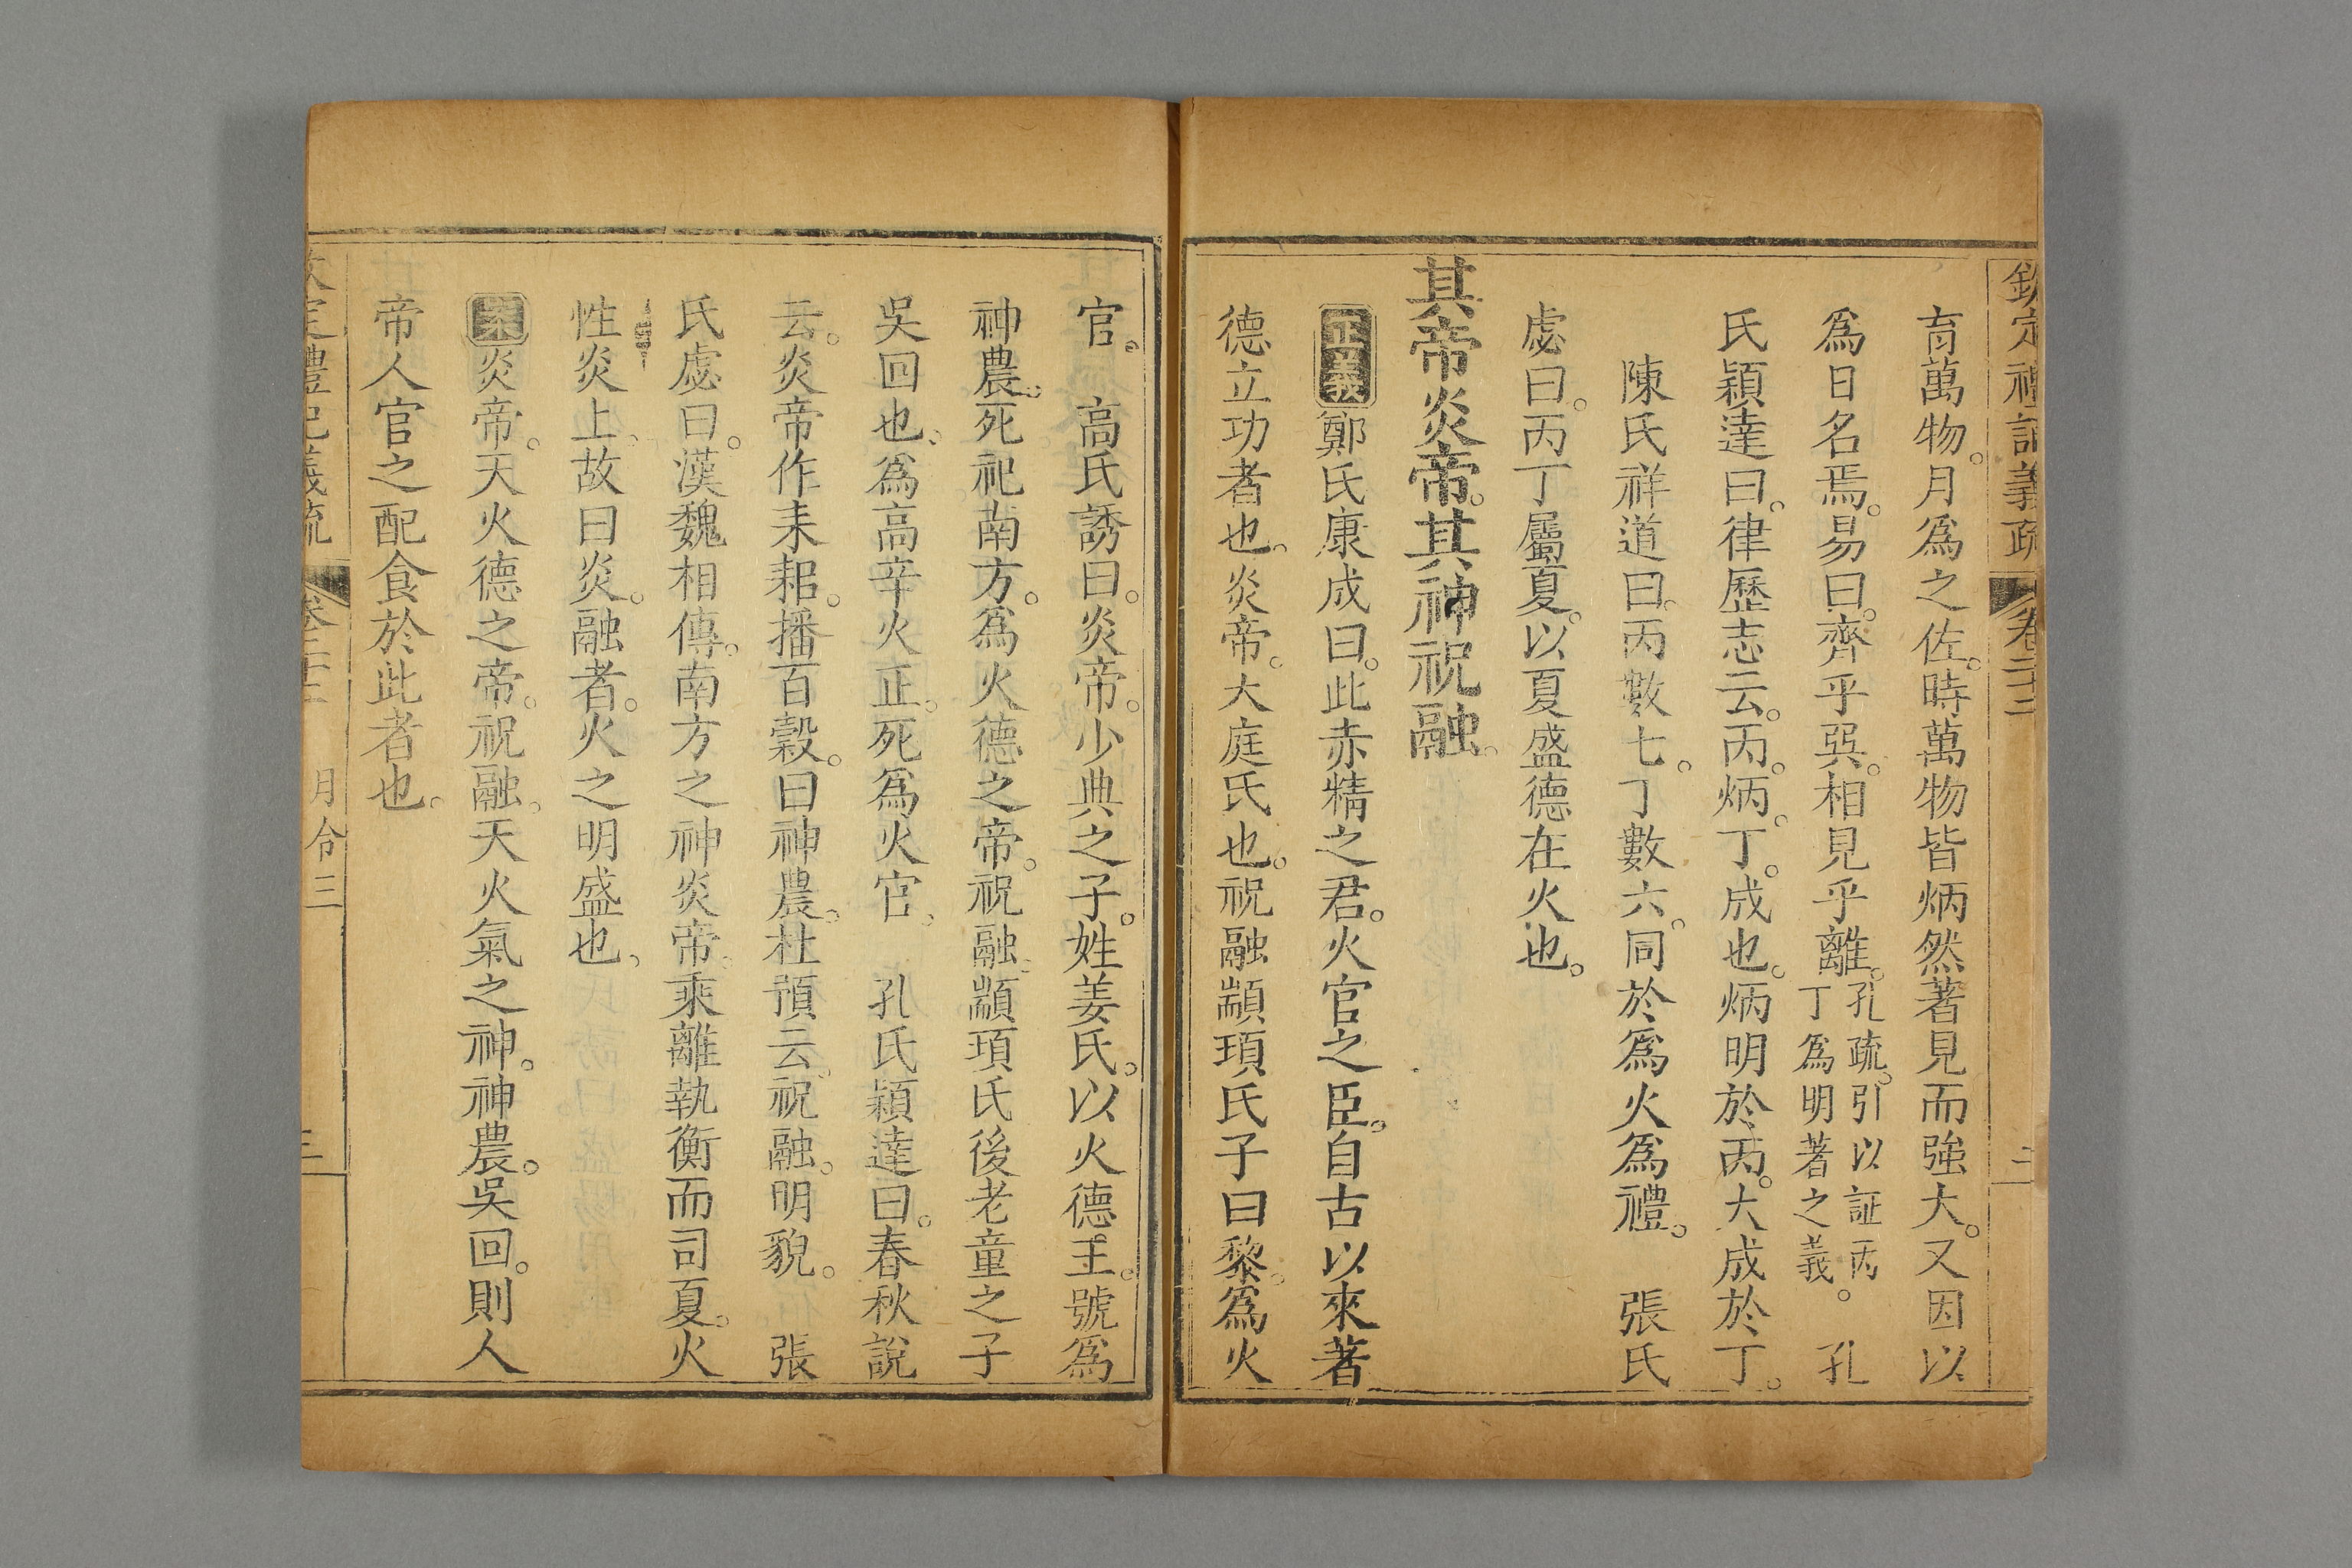 欽定禮記義疏 卷二十二 二
育萬物。月爲之佐。時萬物皆炳然著見而強大。又因以
爲日名焉。易曰。齊乎巽。相見乎離。孔疏。引以証丙丁爲明著之義。 孔
氏穎達曰。律歷志云。丙。炳。丁。成也。炳明於丙。大成於丁。
陳氏祥道曰。丙數七。丁數六。同於爲火爲禮。 張氏
處曰。丙丁屬夏。以夏盛德在火也。
其帝炎帝。其神祝融。
正義鄭氏康成曰。此赤精之君。火官之臣。自古以來著
德立功者也。炎帝。大庭氏也。祝融顓頊氏子曰黎。爲火
官。 高氏誘曰。炎帝。少典之子。姓姜氏。以火德王。號爲
神農。死祀南方。爲火德之帝。祝融。顓頊氏後老童之子
吳回也。爲高辛火正。死爲火官。 孔氏穎達曰。春秋說
云。炎帝作耒耜。播百穀。曰神農。杜預云。祝融。明貌。 張
氏處曰。漢魏相傳。南方之神炎帝。乘離執衡而司夏。火
性炎上。故曰炎。融者。火之明盛也。
案炎帝。天火德之帝。祝融。天火氣之神。神農。吳回。則人
帝人官之配食於此者也。
欽定禮記義疏 卷二十二 月令三 三